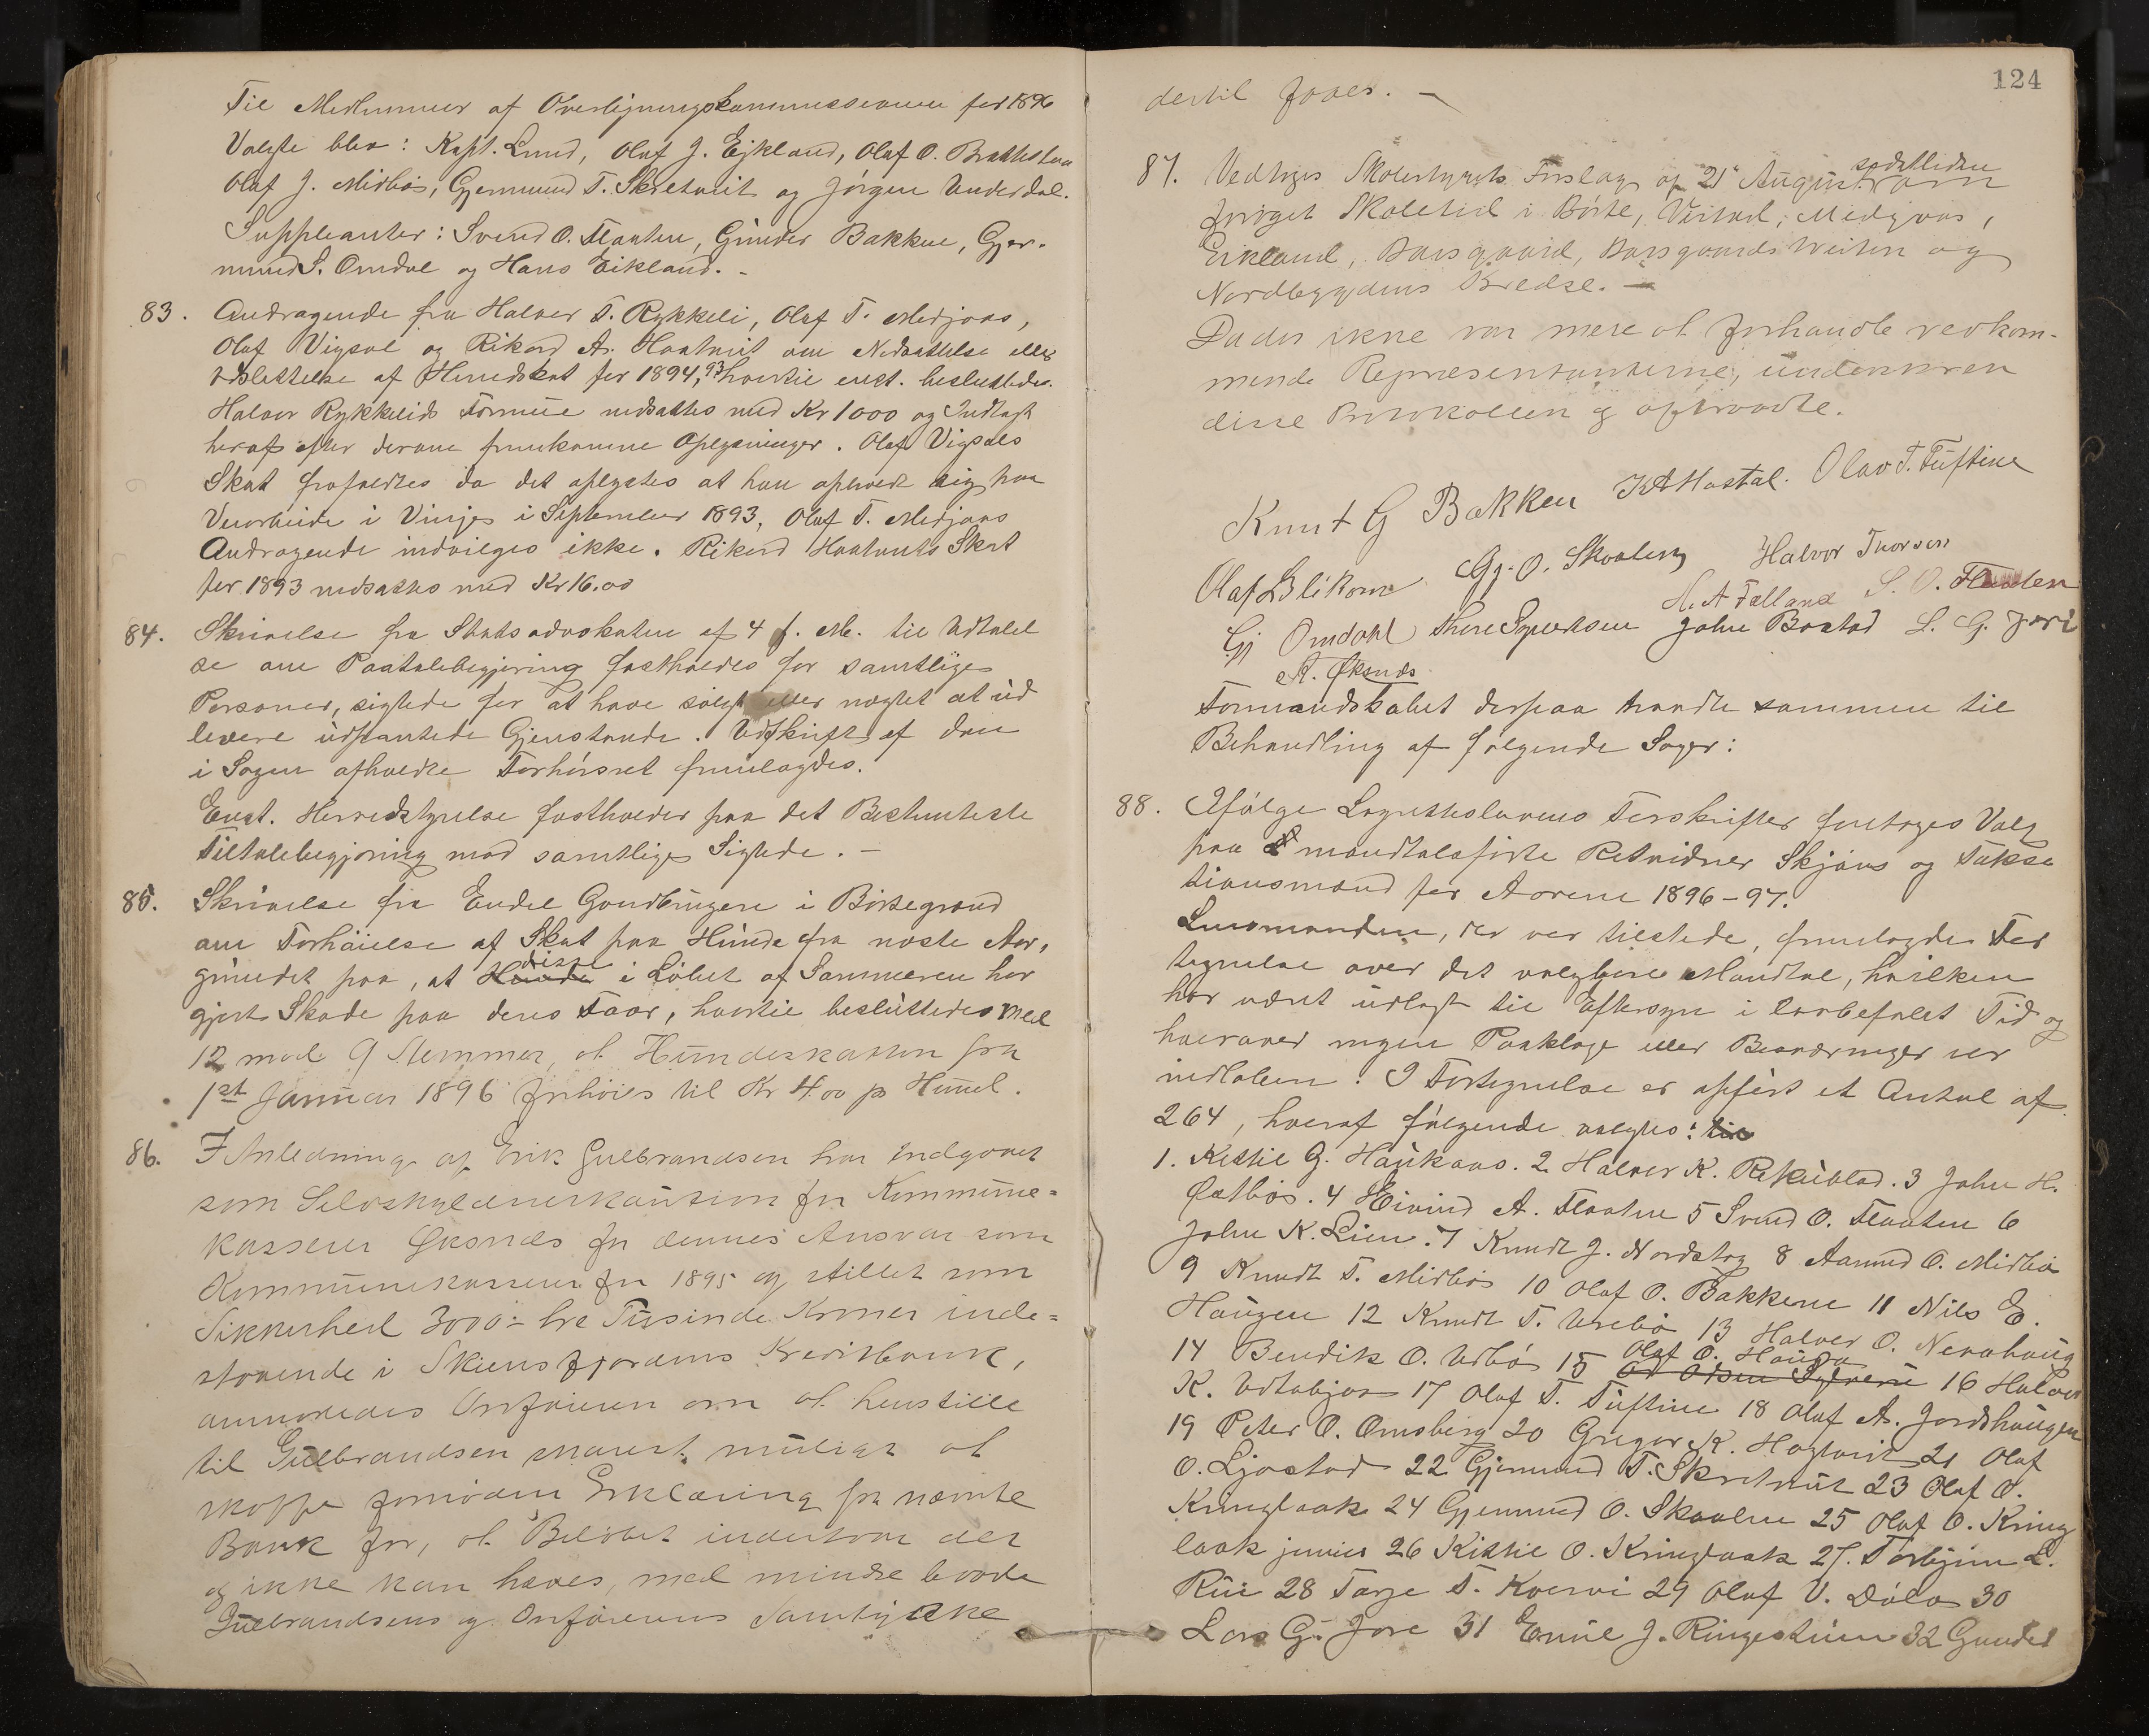 Til Medlemmer af Overligningskommissionen for 1896
Valgte blev: Kapt. Lund, Olaf J. Eikland, Olaf O. Brattestaa
Olaf J. Midbø, Gjermund T. Skretveit og Jørgen Underdal.
Suppleanter: Svend O. Flaaten, Gunder Bakken, Gjer-
mund S. Omdal og Hans Eikland. -
83. Andragende fra Halvor T. Rykkeli, Olaf T. Medjaas,
Olaf Vigsal og Rikard A. Haatveit om Nedsættelse eller
Udslettelse af Herredskat for 1894, 93 hvortil enst. besluttedes.
Halvor Rykkelids Formue nedsattes med Kr 1000 og Indtægt
heraf efter derom fremkomne Oplysninger. Olaf Vigsals
Skat frafaldtes da det oplystes at han opholdt sig paa
Veiarbeide i Vinje i September 1893, Olaf T. Medjaas
Andragende indvilges ikke. Rikard Haatveits Skat
for 1893 nedsattes med Kr 16.00
84. Skrivelse fra Statsadvokaten af 4 f. M. til Udtalel
se om Paatalebegjering fastholdes for samtlige
Personer, sigtede for at have solgt eller nægtet at ud
levere udpantede Gjenstande. Udskrift af den
i Sagen afholdte Forhørsret fremlagdes.
Enst. Herredstyrelse fastholder paa det Bestemteste
Tiltalebegjæring mod samtlige Sigtede. -
85. Skrivelse fra Endel Gaardbrugere i Børtegrænd
om Forhøielse af Skat paa Hunde fra næste Aar,
grundet paa, at Hunde disse i Løbet af Sommeren har
gjort Skade paa deres Faar, hvortil besluttedes med
12 mod 9 Stemmer, at Hundeskatten fra
1st Januar 1896 forhøies til Kr 4.00 pr Hund.
86. I Anledning af Erik Gulbrandsen har indgaaet
som Selvskyldnerkaution for Kommune=
kasserer Øksnæs for dennes Ansvar som
Kommunekasserer for 1895 og stillet som
Sikkerhed 3000:- tre Tusinde Kroner inde=
staaende i Skiensfjordens Kreditbank,
anmodedes Ordføreren om at henstille
til Gulbrandsen snarest muligt at
skaffe fornøden Erklæring fra nævnte
Bank for, at Beløbet indestaar der
og ikke kan hæves, med mindre baade
Gulbrandsens og Ordførerens Samtykke
124
dertil faaes. -
87. Vedtages Skolestyrets Forslag af 21 August
forøget Skoletid i Børte, Veistad, Medjaas,
Eikland, Dalsgaard, Dalsgaards Vesten og
Nordbygdens Kredse. -
Da der ikke var mere at forhandle vedkom-
mende Repræsentanterne, underskreven
disse Protokollen og aftraadte.
Knut G Bakken K A Hastal. Olav T. Tuftine
Olaf Blikom Gj. O. Skaalen Halvor Thorsen
H. A Felland S. O. Flaaten
Gj Omdahl Thore Sigurdsen John Bostad L. G. Jore
A. Øksnæs
Formandskabet derpaa traadte sammen til
Behandling af følgende Sager:
88. Ifølge Lagretteslovens Forskrifter foretages Valg
paa mandtalsførte Retsvidner Skjøns og Takse
tionsmænd for Aarene 1896-97.
Lensmanden, der var tilstede, fremlagde For
tegnelse over det valgbare Mandtal, hvilken
har været udlagt til Eftersyn i lovbefalet Tid og
hvorover ingen Paaklage eller Besværinger er
indløben. I Fortegnelse er opført et Antal af
264, hveraf følgende valgtes: til
1. Kittil G. Haukaas. 2 Halvor K. Rekulstad. 3 John H.
Østbø. 4 Eivind A. Flaaten 5 Svend O. Flaaten 6
John K. Lien. 7 Knudt J. Nordstog 8 Aamund O. Midbø
9 Knudt T. Midbø 10 Olaf O. Bakkene 11 Nils E.
Haugen 12 Knudt T. Urebø 13 Halvor O. Nerahaug
14 Bendik O. Urbø 15 Olaf O. Hauga 16 Halvor
K. Utabjaa 17 Olaf T. Tuftine 18 Olaf A. Jordshaugen
19 Peter O. Omsberg 20 Gregor K. Hogtveit 21 Olaf
O. Ljostad 22 Gjermund T. Skretveit 23 Olaf O.
Kringlaak 24 Gjermund O. Skaalen 25 Olaf O. Kring
laak junior 26 Kittil O. Kringlaak 27. Torbjørn L.
Rui 28 Tarje T. Kvervi 29 Olaf V. Døla 30
Lars G. Jore 31 Emil J. Ringestuen 32 Gunder